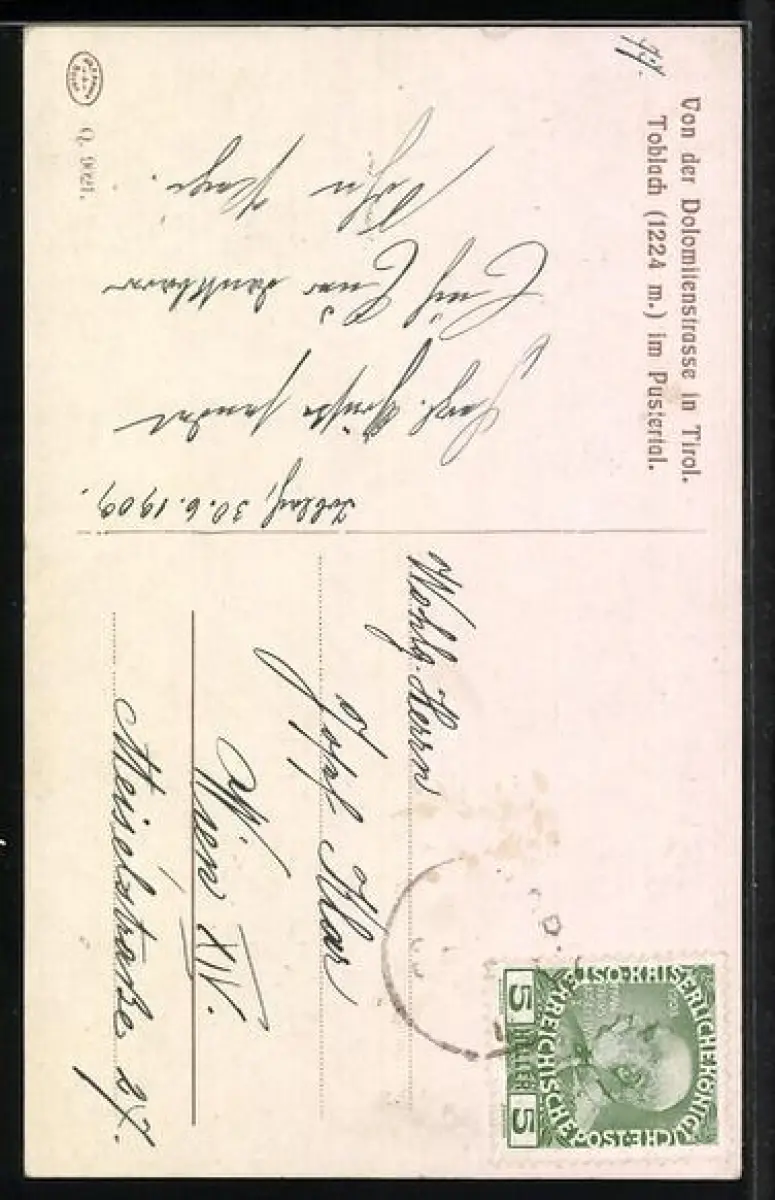 Von der Dolomitenstrasse in Tirol.
Toblach (1224 m.) im Pustertal.
Toblach, 30.6.1909.
Herzl. Grüße sendet
Euch Euer dankbarer
Wohlg. Herrn
Josef Klar
Wien XIV.
Meiselstraße 27.
KAISERLICHE KÖNIGLICHE
ÖSTERREICHISCHE POST
5 HELLER 5